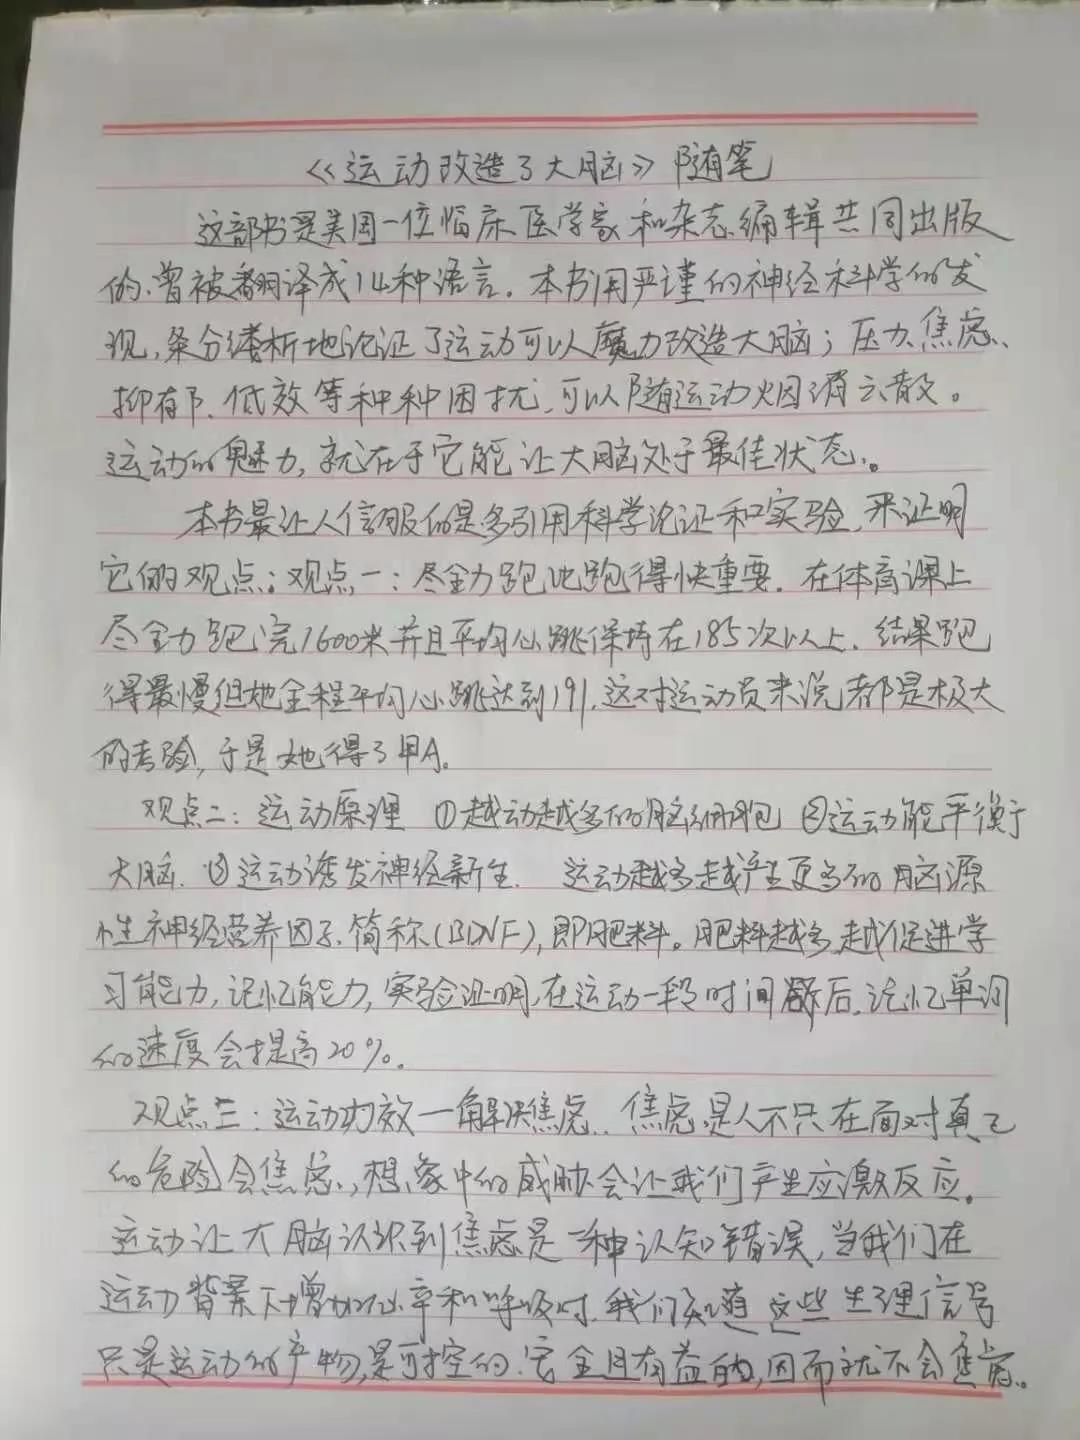 《运动改造了大脑》随笔
这部书是美国一位临床医学家和杂志编辑共同出版
的、曾被翻译成14种语言。本书用严谨的神经科学的发
现,条分缕析地论证了运动可以魔力改造大脑;压力、焦虑、
抑郁、低效等种种困扰、可以随运动烟消云散。
运动的魅力,就在于它能让大脑处于最佳状态。
本书最让人信服的是多引用科学论证和实验,来证明
它的观点:观点一:尽全力跑比跑得快重要. 在体育课上
尽全力跑完1600米并且平均心跳保持在185次以上. 结果跑
得最慢但她全程平均心跳达到191.这对运动员来说都是极大
的考验,于是她得了甲A.
观点二:运动原理 ①越动越多的脑细胞 ②运动能平衡于
大脑. ③运动诱发神经新生. 运动越多越产生更多的脑源
性神经营养因子.简称(BDNF),即肥料。肥料越多,越促进学
习能力,记忆能力,实验证明,在运动一段时间后,记忆单词
的速度会提高20%.
观点三:运动功效一解决焦虑. 焦虑是人不只在面对真正
的危险会焦虑,想象中的威胁会让我们产生应激反应。
运动让大脑认识到焦虑是一种认知错误,当我们在
运动背景下增加心率和呼吸时.我们知道这些生理信号
只是运动的产物,是可控的.安全且有益的,因而就不会焦虑。